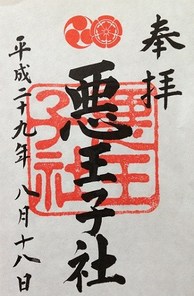 奉拝
悪王子社
平成二十九年 八月十八日